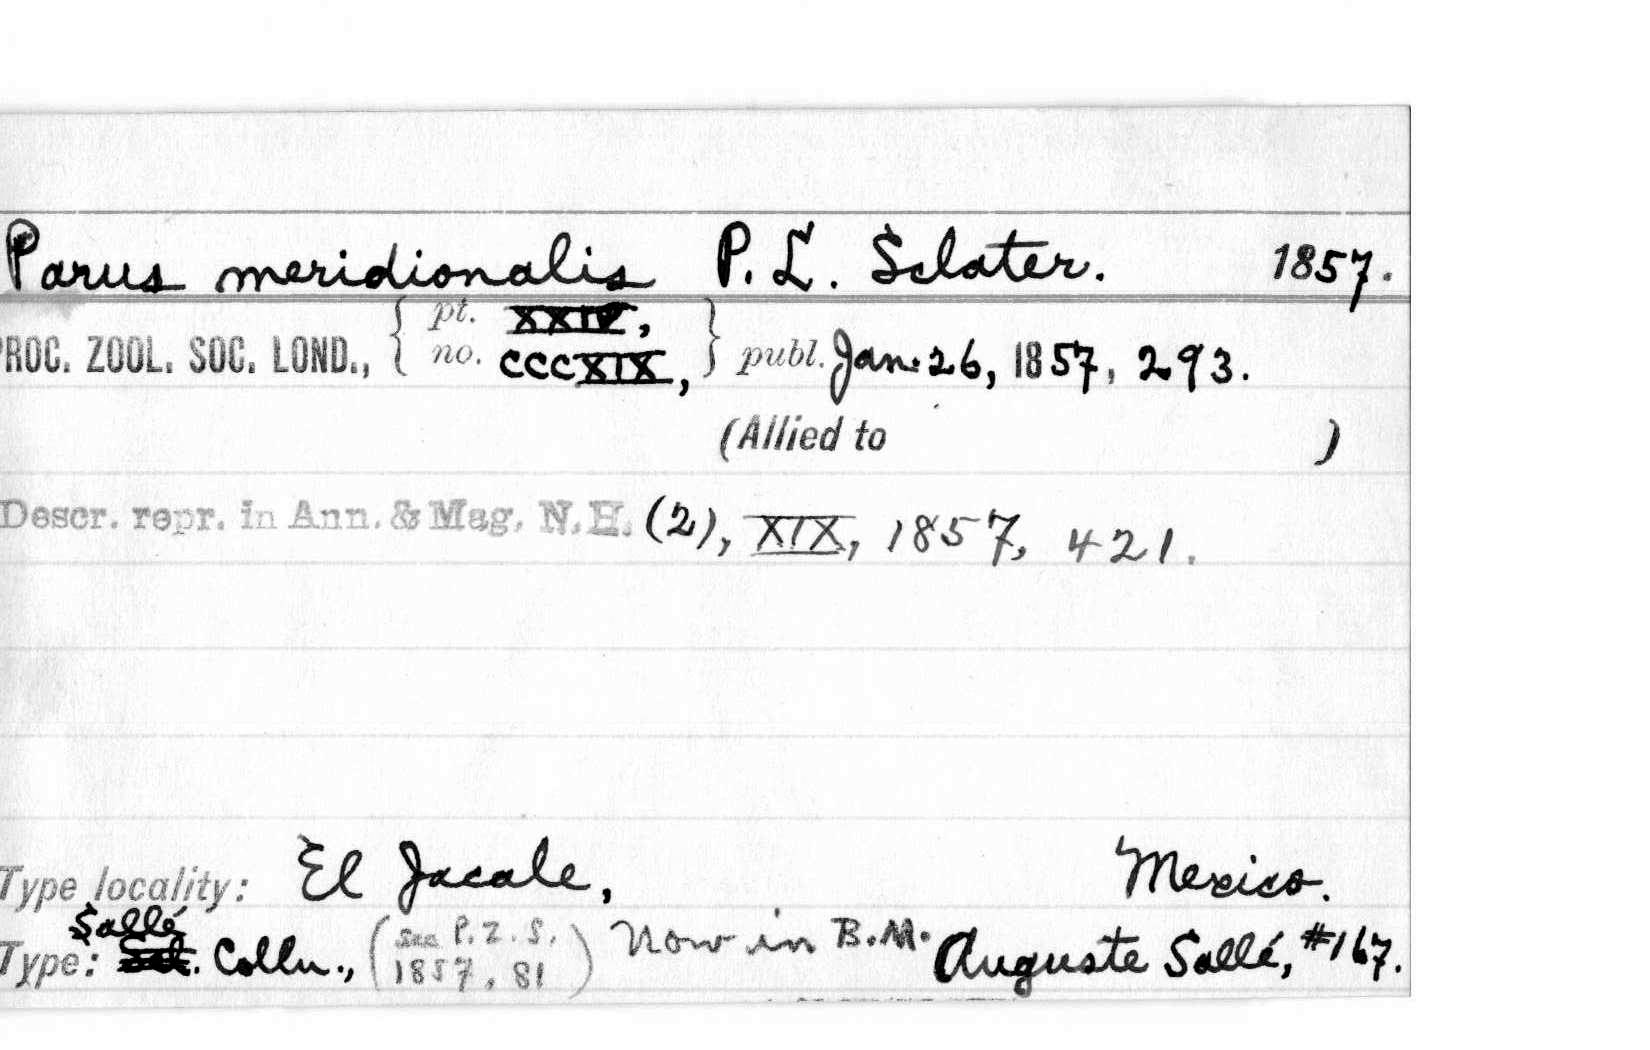 Parus meridionalis P. L. Sclater. 1857.
PROC. ZOOL. SOC. LOND., { pt. XXIV, no. CCCXIX, } publ. Jan. 26, 1857, 293.
(Allied to )
Descr. repr. in Ann. & Mag. N.H. (2), XIX, 1857, 421.
Type locality: El Jacale, Mexico.
Sallé
Type: Scl. Colln., (see P.Z.S. 1857, 81) Now in B.M. Auguste Sallé, #167.